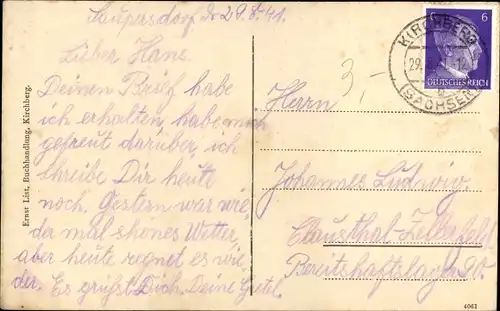 Saupersdorf, d. 29.8.41.
Lieber Hans.
Deinen Brief habe
ich erhalten, habe mich
gefreut darüber, ich
schreibe Dir heute
noch. Gestern war wie,
da mal shönes Wetter,
aber heute regnet es wie,
der. Es grüßt Dich Deine Gretel.
Ernst List, Buchhandlung, Kirchberg.
3,-
KIRCHBERG
29.
(SACHSEN)
6
DEUTSCHES REICH
Herrn
Johannes Ludwig.
Clausthal-Zellerfeld
Bereitshaftslager 20.
4061